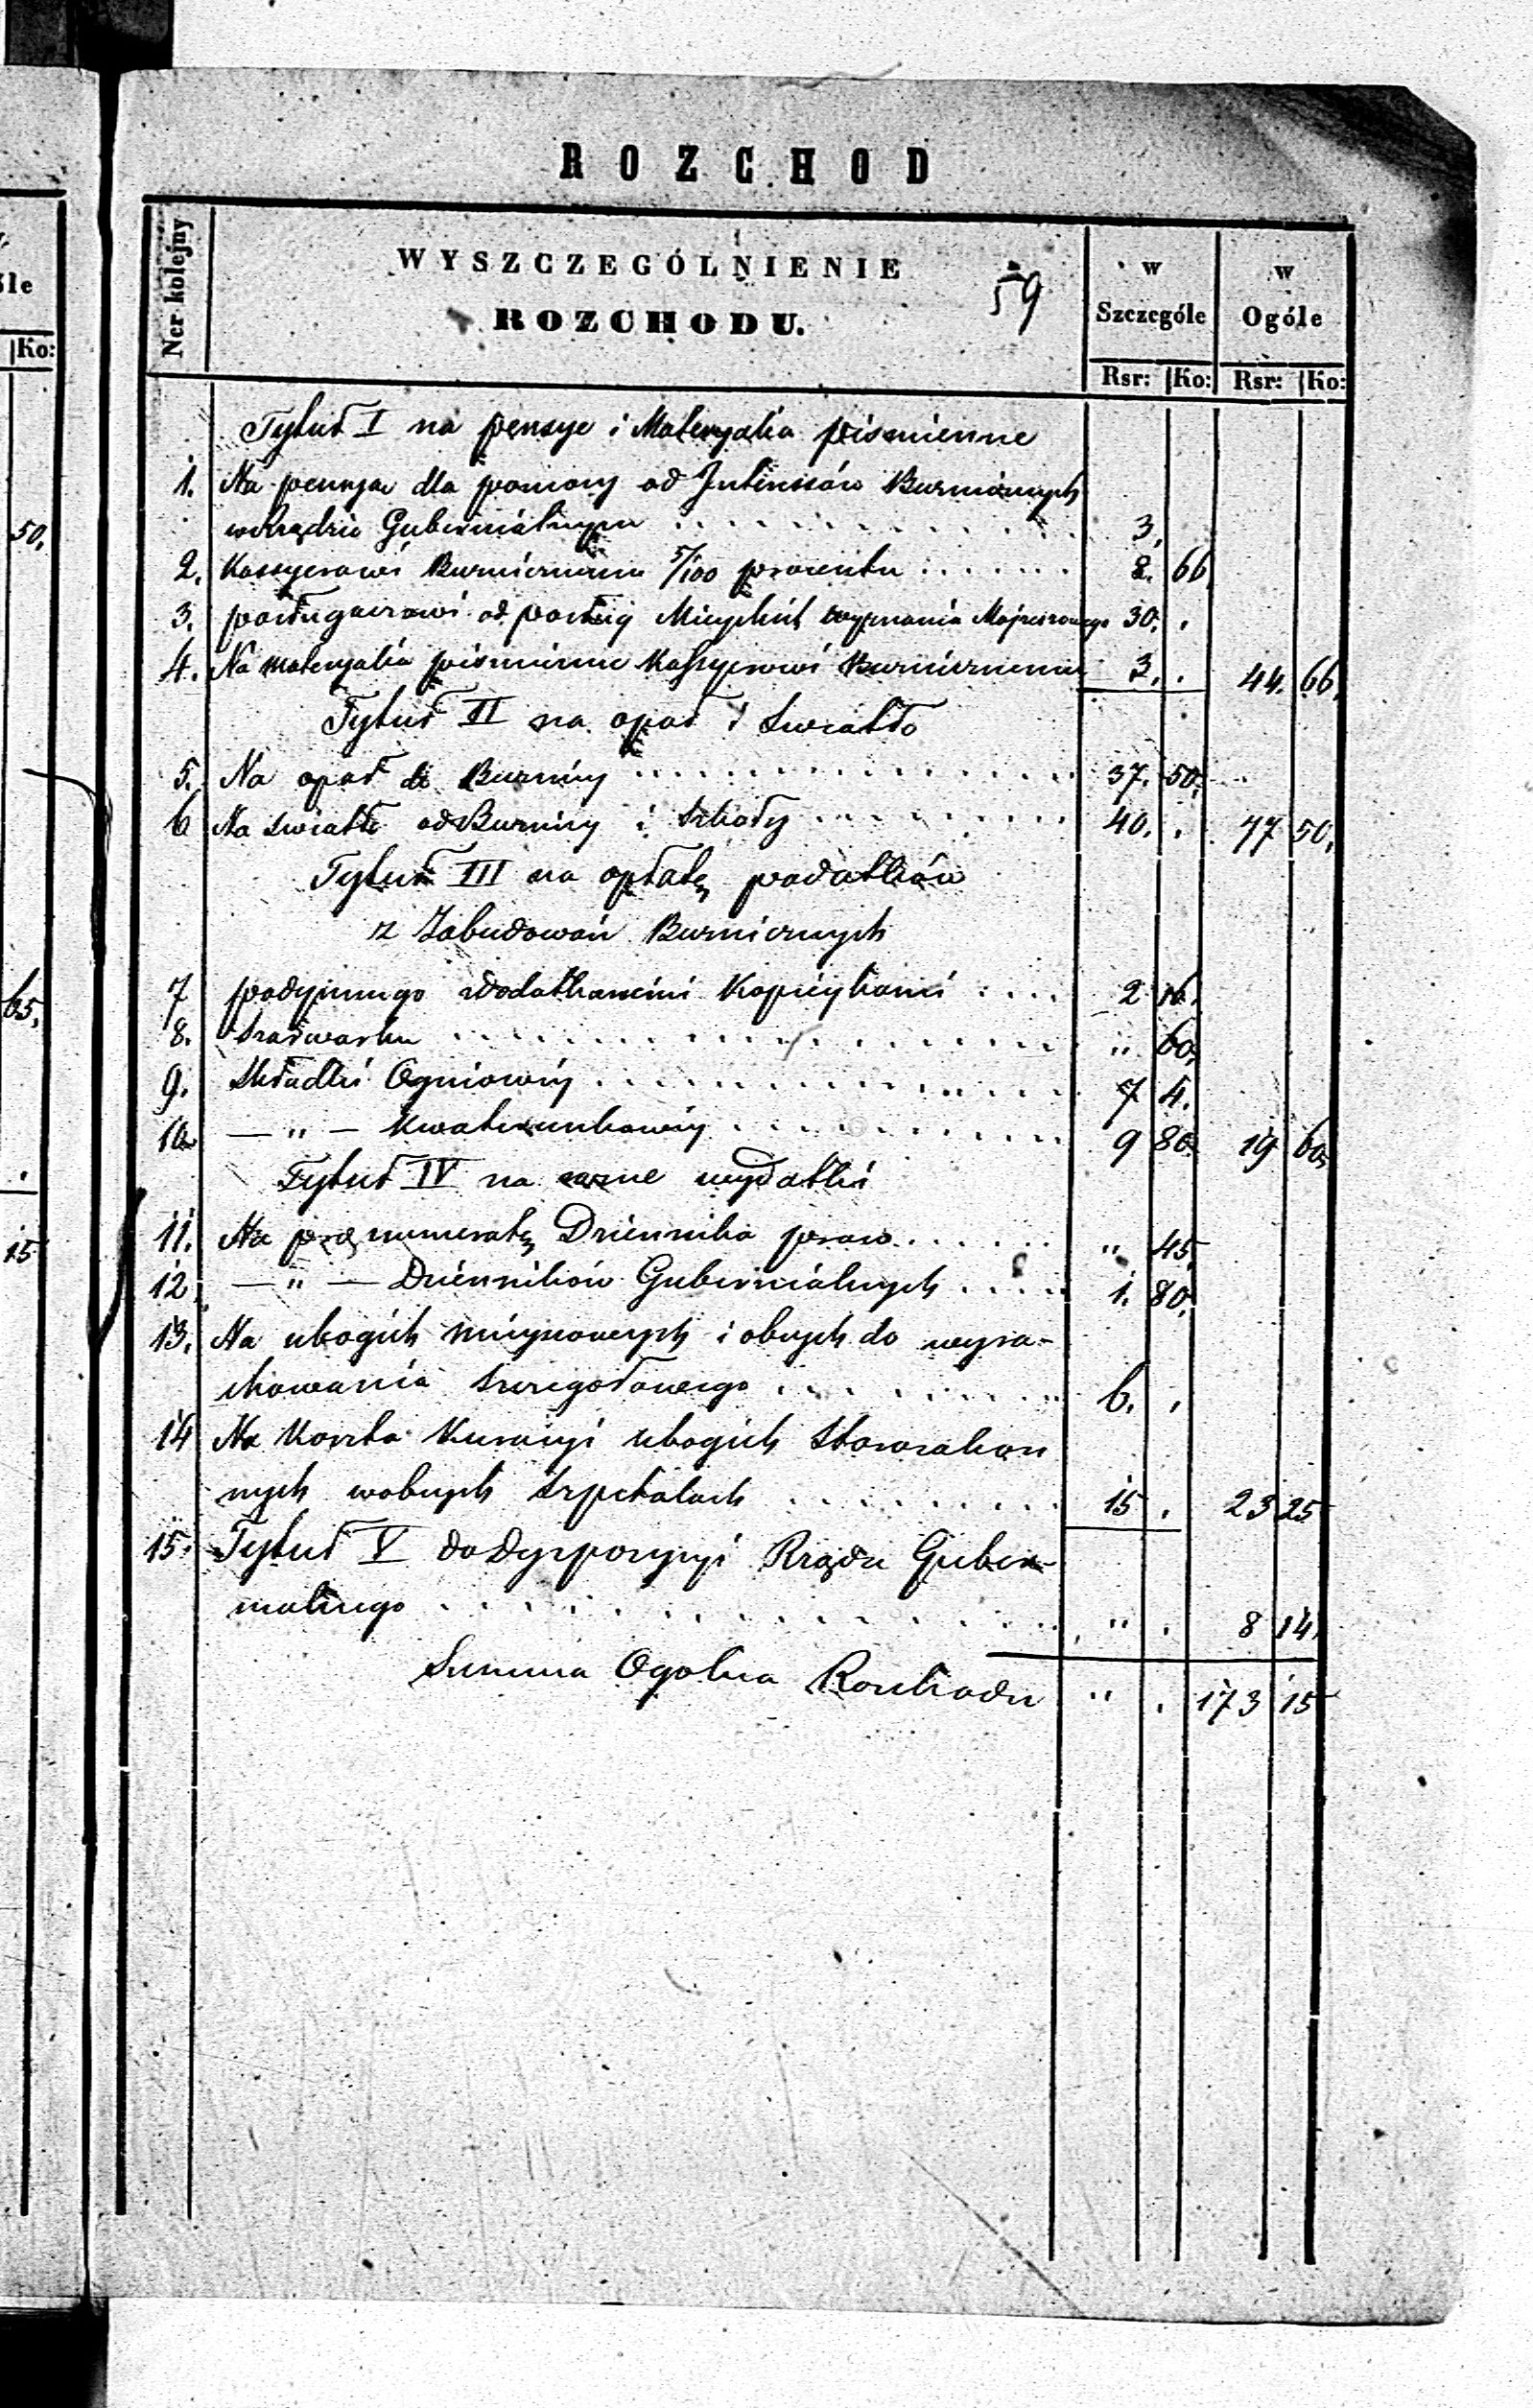 ROZCHOD
Ner kolejny
WYSZCZEGÓLNIENIE
ROZCHODU.
59
w Szczególe
w Ogóle
Rsr: Ko: Rsr: Ko:
Tytuł I na pensye i Materyalia piśmienne
1. Na pensya dla pomocy od Interessów Burnicznych
w Rządzie Gubernialnym . . . . 3.
2. Kassyerowi Burnicznemu 5/100 procentu . . . . 2. 66
3. posługaczowi od posług Mieyskich wyznania Mojżeszowego 30. .
4. Na materyalia piśmienne Kassyerowi Burnicznemu 3. . 44. 66.
Tytuł II na opał i Swiatło
5. Na opał do Burnicy . . . . 37. 50.
6 Na światło od Burnicy i Szkoły . . . . 40. . 77 50.
Tytuł III na opłatę podatków
z Zabudowań Burnicznych
7 podymnego z dodatkowemi Kopieykami . . . . 2 16.
8. Szarwarku . . . . " 60.
9. Składki Ogniowéy . . . . 7 4.
10. — " — Kwaterunkowéy . . . . 9 80. 19 60.
Tytuł IV na rozne wydatki
11. Na prenumeratę Dziennika praw . . . . " 45.
12 — " — Dzienników Gubernialnych . . . . 1. 80.
13. Na ubogich mieyscowych i obcych do wyra-
chowania szczegołowego . . . . 6. .
14 Na Koszta Kuracyi ubogich Starozakon
nych w obcych Szpitalach . . . . 15 . 23 25
15. Tytuł V do dyspozycyi Rządu Guber-
nialnego . . . . " . 8 14.
Summa Ogolna Rozchodu " . 173 15
Ko:
50.
65.
15